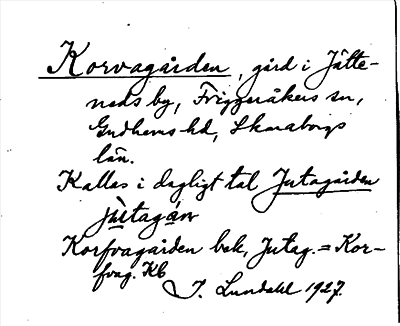 Korvagården, gård i Jätte-
neds by, Friggeråkers sn,
Gudhems hd, Skaraborgs
län.
Kallas i dagligt tal Jutagården
Korfvagården bek, Jutag. = Kor-
fvag. Kb
J. Lundahl 1927.